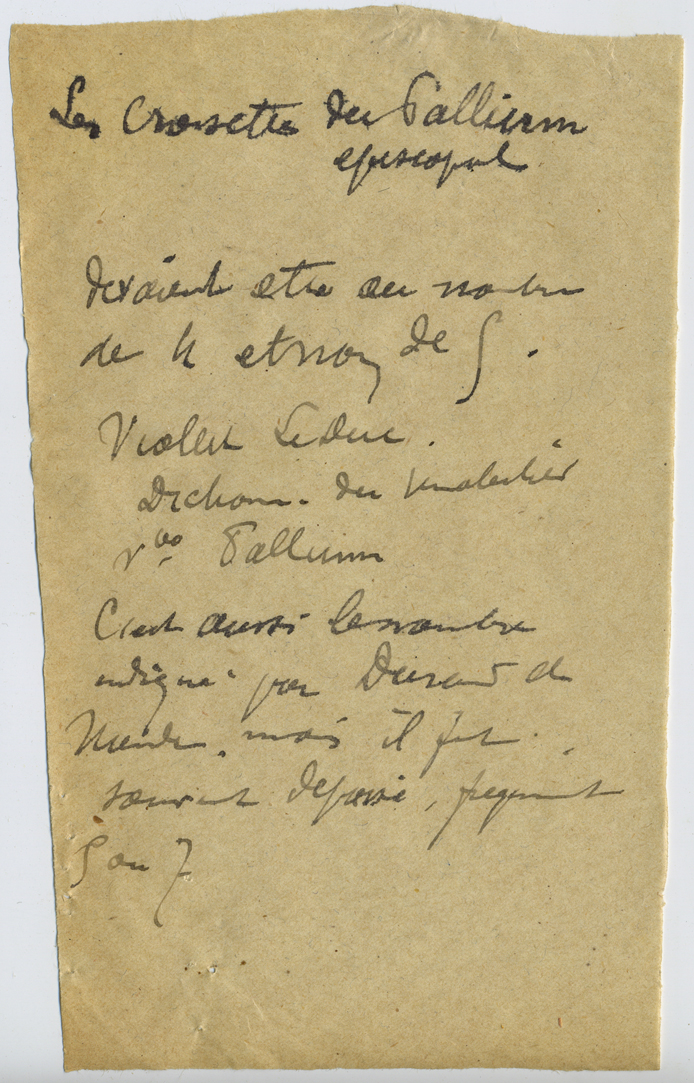 Les Croisettes du Pallium
episcopal
devaient etre au nombre
de 4 et non de 5.
Viollet Le Duc.
Dictionn. du mobilier
v° Pallium
C'est aussi le nombre
indiqué par Durand de
Mende, mais il fut
souvent depassé,
5 ou 7